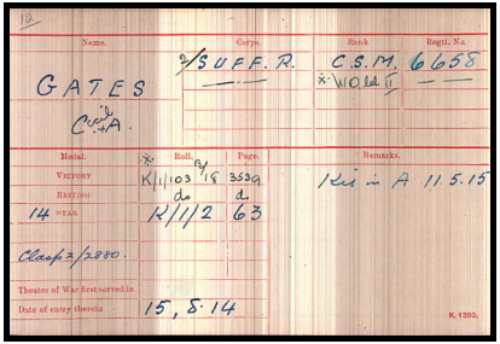 12
Name. Corps. Rank Regtl. No.
GATES 2/SUFF. R. C.S.M. 6658
* W.O. cl II
Cecil A.
Medal. * Roll. Page. Remarks.
VICTORY K/1/103 B/18 3539 Kil in A 11.5.15
BRITISH do do
14 STAR K/1/2 63
Clasp 2/2880.
Theatre of War first served in
Date of entry therein 15.8.14
K. 1380.